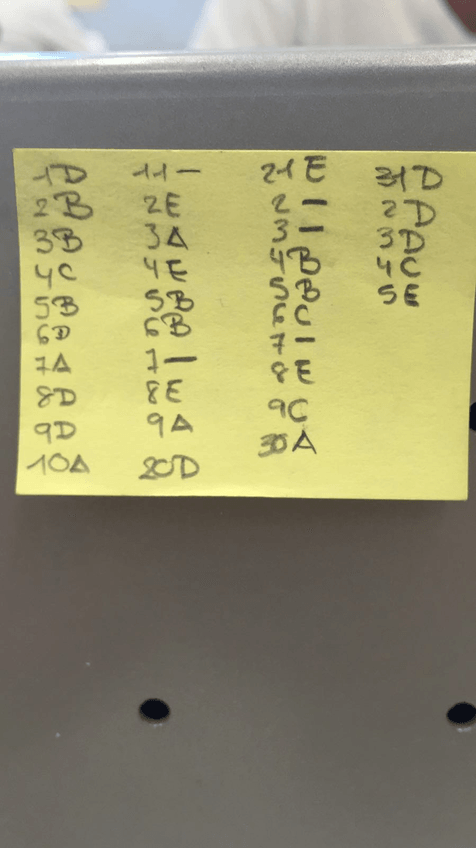 1D
2B
3B
4C
5B
6D
7A
8D
9D
10A
11-
2E
3A
4E
5B
6B
7-
8E
9A
20D
21E
2-
3-
4B
5B
6C
7-
8E
9C
30A
31D
2D
3D
4C
5E